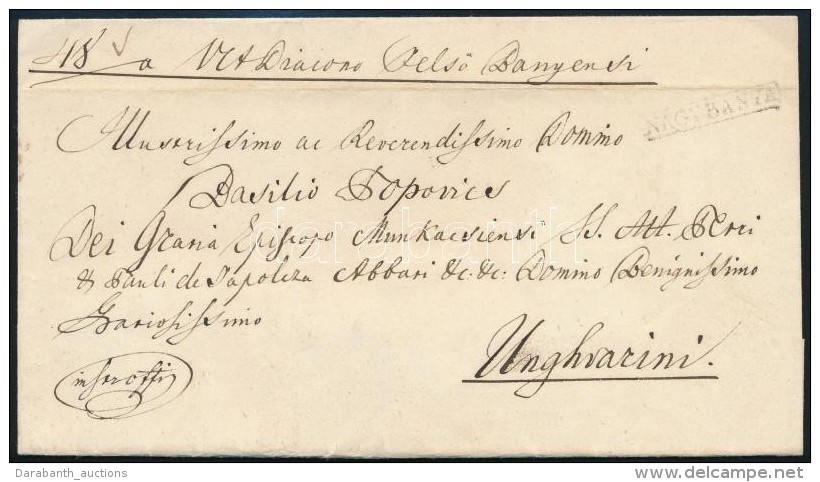 418 a VA Diacono Felsö Banyensi
NAGYBANYA
Illustrissimo ac Reverendissimo Domino
Basilio Popovics
Dei Gratia Episcopo Munkacsiensi SS. Att. Petri
& Pauli de Tapolcza Abbati &c: &c: Domino Benignissimo
Gratiosissimo
Unghvarini.
in ser offi
darabanth
Darabanth_auctions
delcampe.net